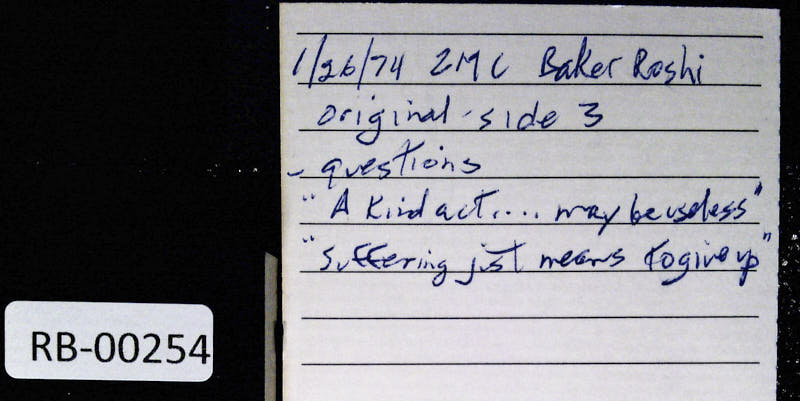 1/26/74 ZMC Baker Roshi
original side 3
- questions
"A Kind act.... may be useless"
"Suffering just means to give up"
RB-00254